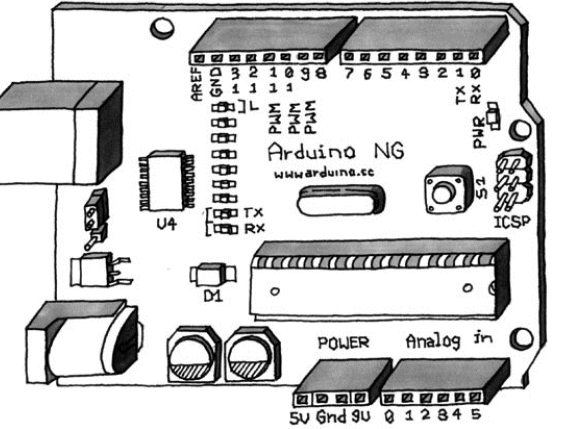 AREF
GND
13
12
11
10
9
8
7 6 5 4 3 2 1 0
TX
RX
L
PWM PWM PWM
PWR
Arduino NG
www.arduino.cc
U4
S1
ICSP
TX
RX
D1
POWER Analog in
5V Gnd 9V 0 1 2 3 4 5